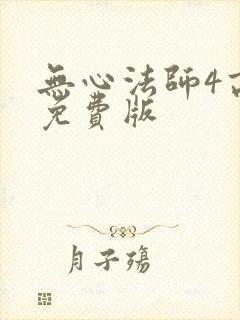 無心法師4
免費版
月子殤